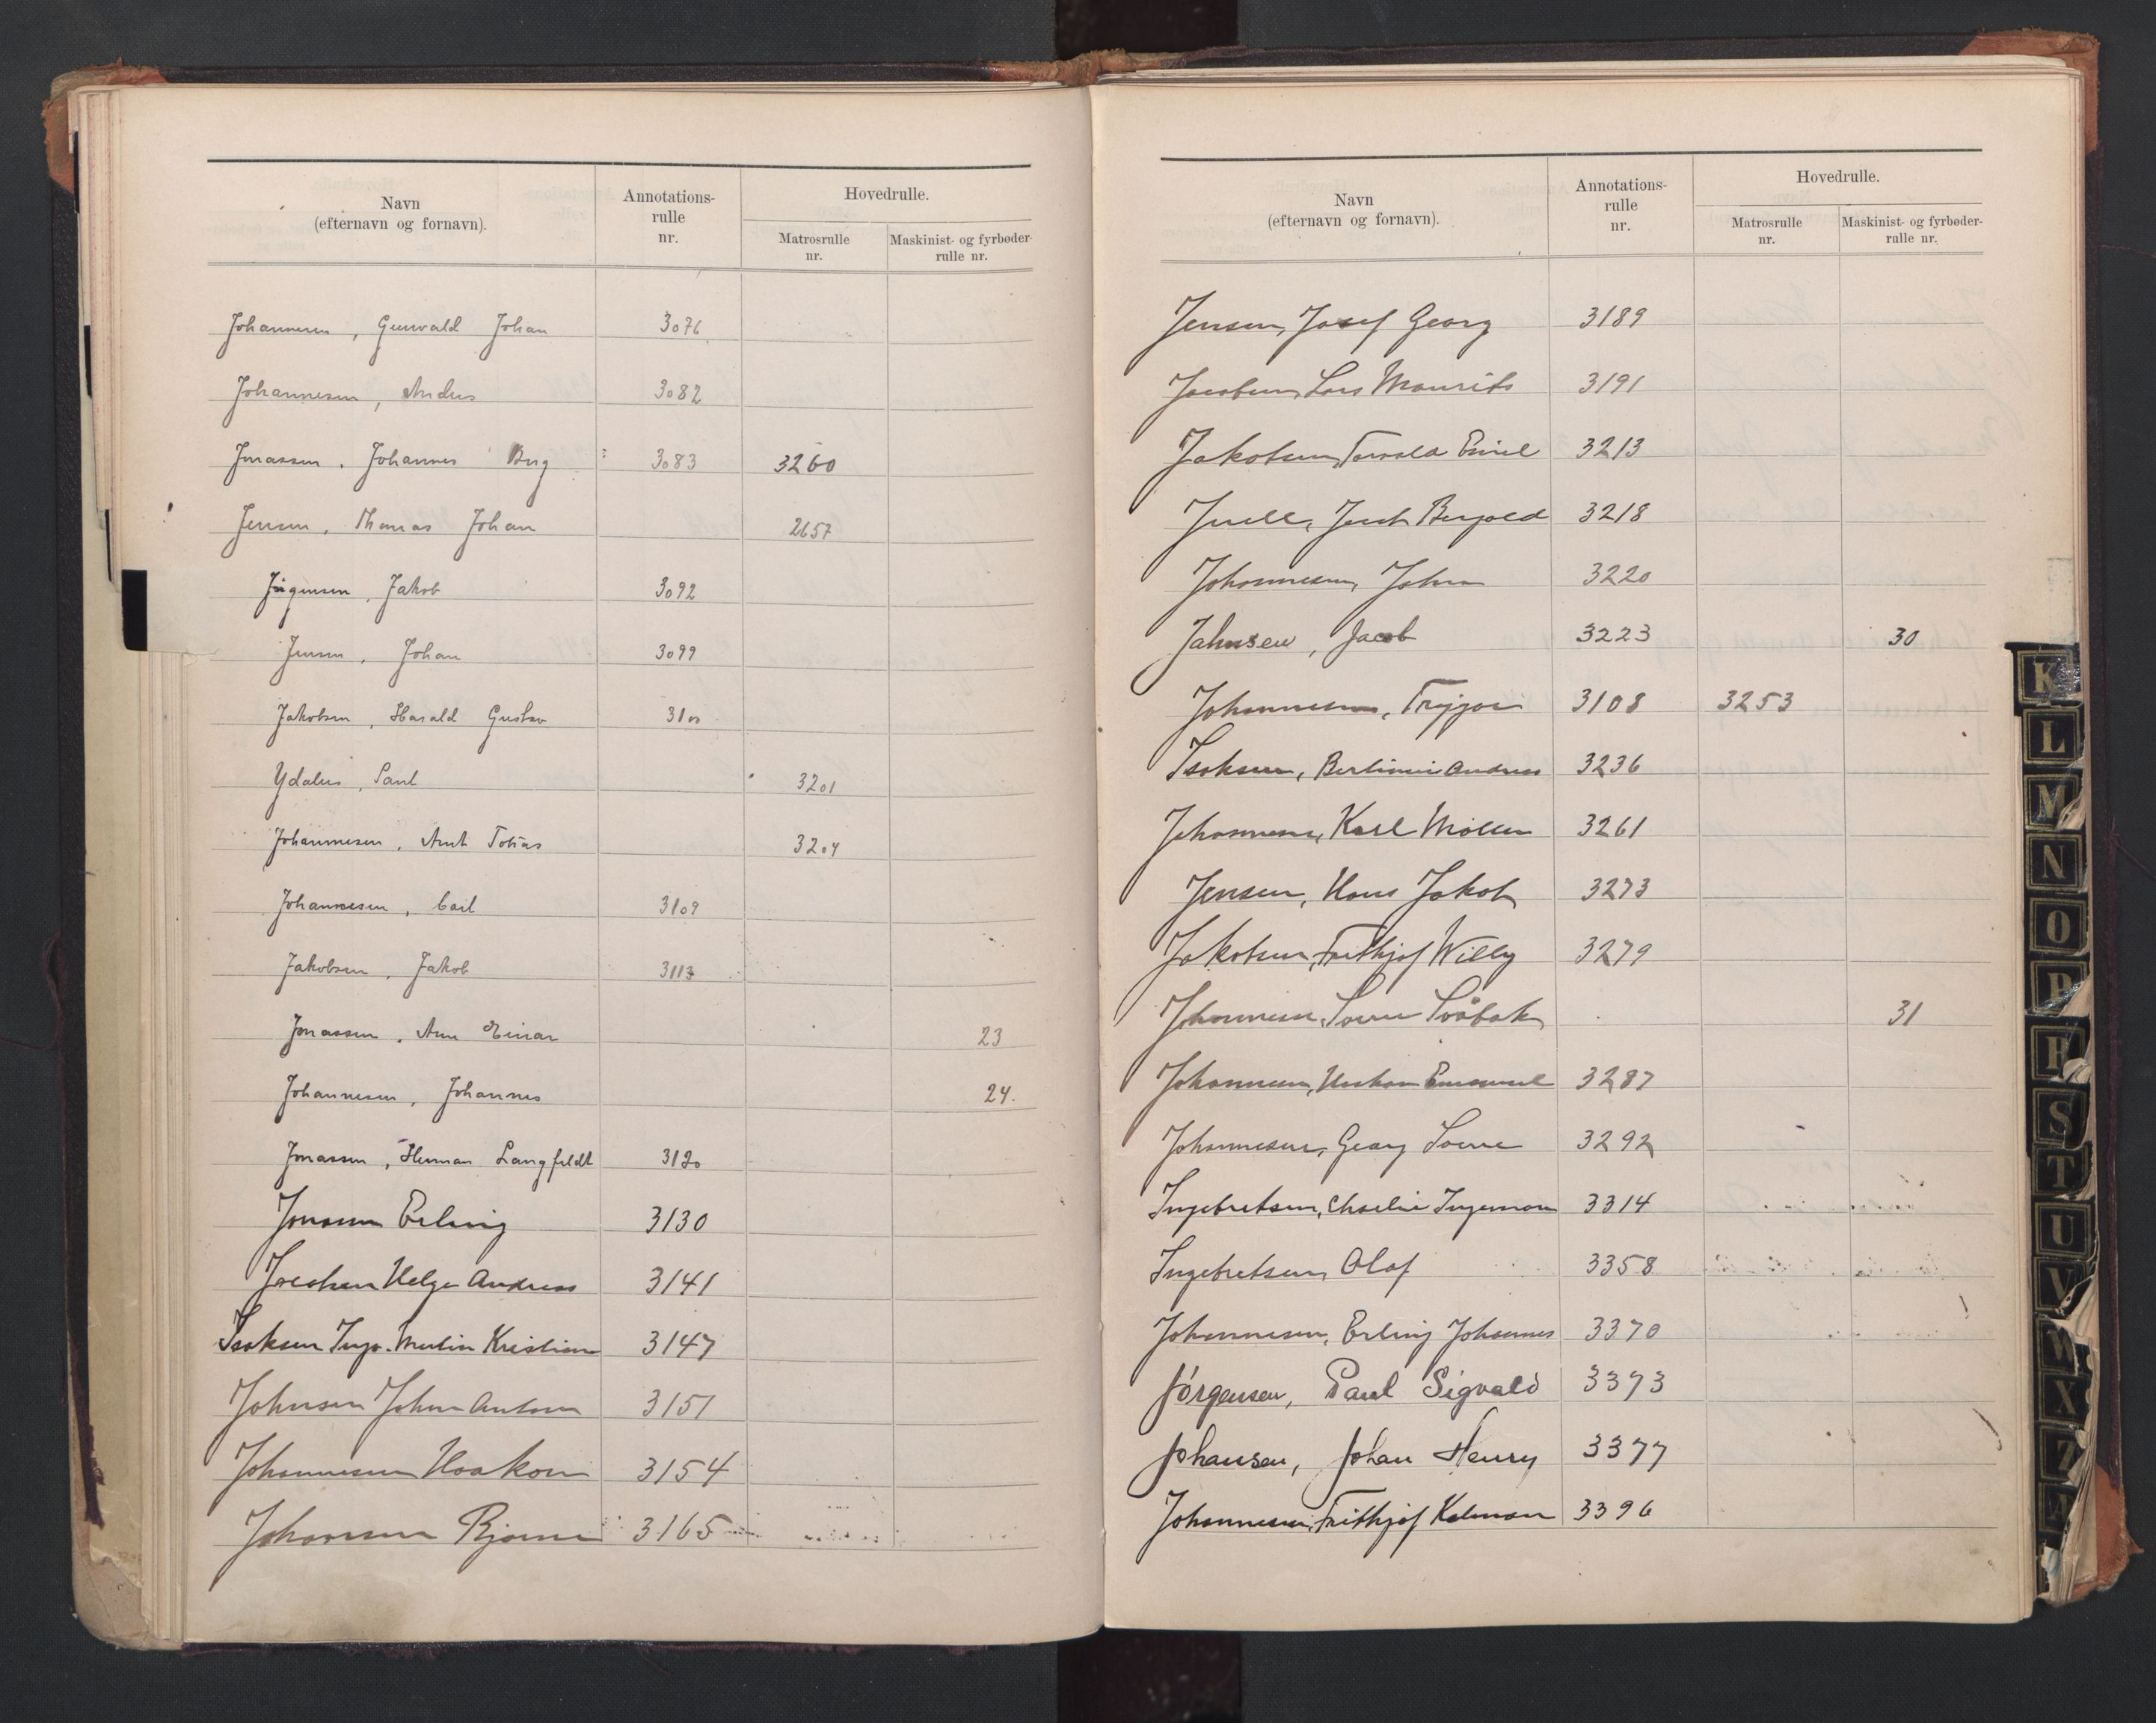 Navn
(efternavn og fornavn).
Annotations-
rulle
nr.
Hovedrulle.
Matrosrulle
nr.
Maskinist- og fyrbøder-
rulle nr.
Johannesen, Gunvald Johan 3076
Johannesen, Anders 3082
Jonassen, Johannes Berg 3083 3260
Jensen, Thomas Johan 2657
Jørgensen, Jakob 3092
Jensen, Johan 3099
Jakobsen, Harald Gustav 3100
Ydalus, Paul 3201
Johannesen, Arnt Tobias 3204
Johannesen, Carl 3109
Jakobsen, Jakob 3113
Jonassen, Arne Einar 23
Johannesen, Johannes 24.
Jonassen, Herman Langfeldt 3120
Jonassen Erling 3130
Jacobsen Helge Andreas 3141
Isaksen Inga. Martin Kristian 3147
Johnsen John Anton 3151
Johannesen Haakon 3154
Johansen Bjarne 3165
Navn
(efternavn og fornavn).
Annotations-
rulle
nr.
Hovedrulle.
Matrosrulle
nr.
Maskinist- og fyrbøder-
rulle nr.
Jensen, Josef Georg 3189
Jacobsen, Lars Maurits 3191
Jakobsen, Torvald Emil 3213
Juell, Just Bergold 3218
Johannesen, John 3220
Jahnsen, Jacob 3223 30
Johannesen, Trygve 3108 3253
Isaksen, Bertinius Andreas 3236
Johannesen, Karl Møller 3261
Jensen, Hans Jakob 3273
Jakobsen, Frithjof Willy 3279
Johannesen, Søren Svåbak 31
Johannesen, Haakon Emanuel 3287
Johannesen, Georg Søren 3292
Ingebretsen, Charlie Ingeman 3314
Ingebretsen, Olaf 3358
Johannesen, Erling Johannes 3370
Jørgensen, Paul Sigvald 3373
Johansen, Johan Henry 3377
Johannesen, Frithjof Kalman 3396
K
L
M
N
O
P
R
S
T
U
V
W
X
Z